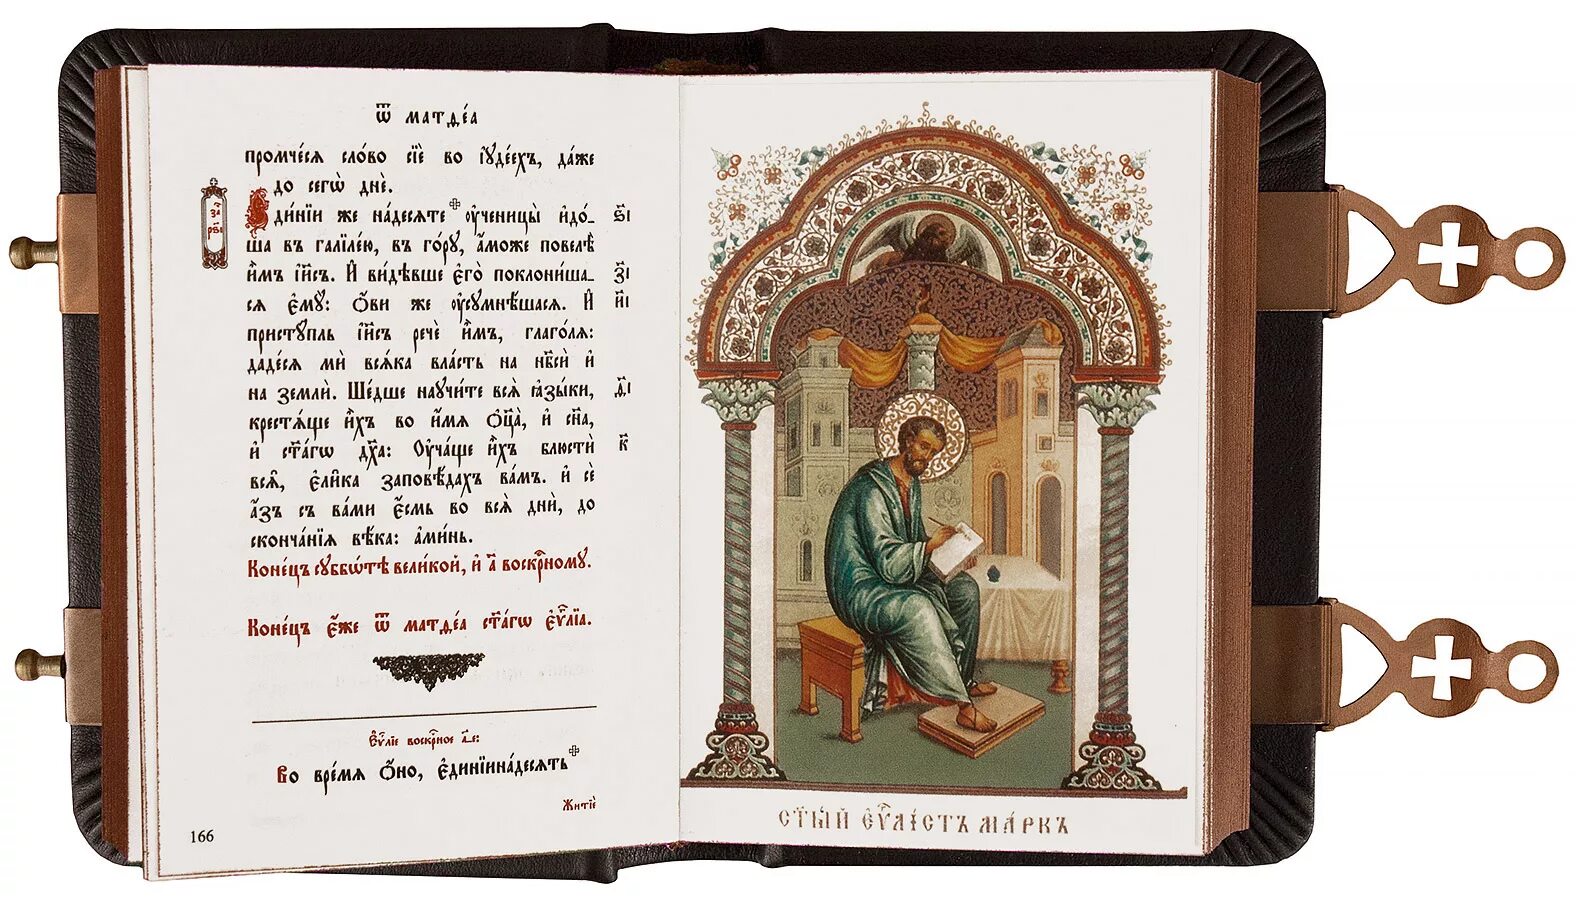 Ѿ матѳе́а
промче́сѧ сло́во сїѐ во і҆ꙋде́ехъ, да́же
до сегѡ̀ днѐ.
за҄ рѕ҃і
Е҆ди́нїи же на́десѧте ᲂу҆ченицы̀ и҆до́-
ша въ галїле́ю, въ го́рꙋ, а҆́може повелѣ̀
и҆̀мъ і҆и҃съ. И҆ ви́дѣвше є҆го̀ поклони́ша-
сѧ є҆мꙋ̀: ѻ҆́ви же ᲂу҆сꙋмнѣ́шасѧ. И҆
пристꙋ́пль і҆и҃съ речѐ и҆̀мъ, глаго́лѧ:
даде́сѧ мѝ всѧ́ка вла́сть на нб҃сѝ и҆
на землѝ. Ше́дше наꙋчи́те всѧ̑ ꙗ҆зы́ки,
крестѧ́ще и҆̀хъ во и҆́мѧ ѻ҆ц҃а̀, и҆ сн҃а,
и҆ ст҃а́гѡ дх҃а: Оу҆ча́ще и҆̀хъ блюстѝ
всѧ̑, є҆ли̑ка заповѣ́дахъ ва́мъ. и҆ сѐ
а҆́зъ съ ва́ми є҆́смь во всѧ̑ дни̑, до
сконча́нїѧ вѣ́ка: а҆ми́нь.
ѕ҃і
з҃і
и҃і
ѳ҃і
к҃
Коне́цъ сꙋббѡ́тѣ вели́кой, и҆ а҃ воскрⷭ҇номꙋ.
Коне́цъ є҆́же ѿ матѳе́а ст҃а́гѡ є҆ѵⷢ҇лїа.
Є҆ѵⷢ҇лїе воскрⷭ҇ное а҃-е:
Во вре́мѧ ѻ҆́но, є҆ди́нїинадесѧть
Житїѐ
166
СТ҃ЫЙ ЕѴⷢ҇ЛІСТЪ МА́РКЪ